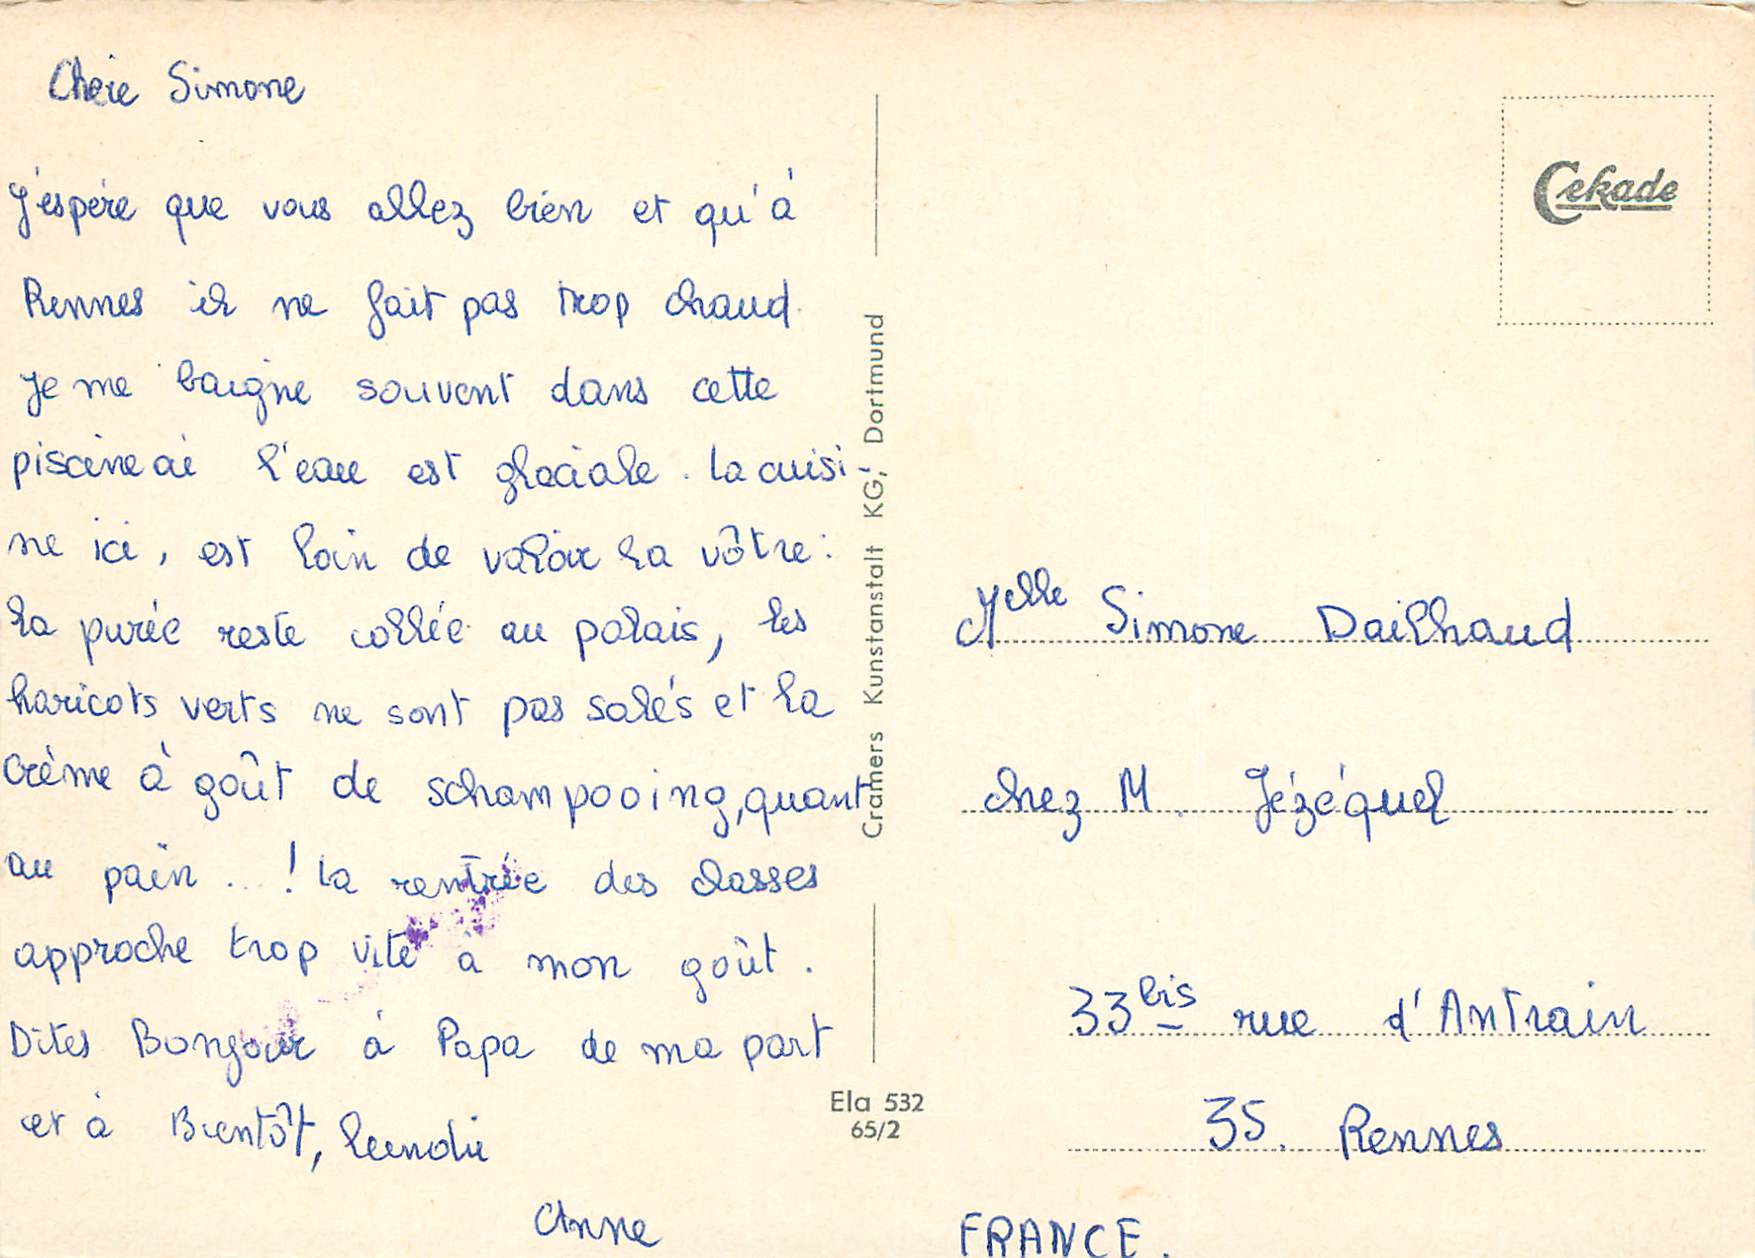 Chère Simone
J'espère que vous allez bien et qu'à
Rennes il ne fait pas trop chaud.
Je me baigne souvent dans cette
piscine où l'eau est glaciale. La cuisi-
ne ici, est loin de valoir la vôtre:
la purée reste collée au palais, les
haricots verts ne sont pas salés et la
crème à goût de schampooing, quant
au pain...! La rentrée des classes
approche trop vite à mon goût.
Dites Bonjour à Papa de ma part
et à Bientôt, lundi
Anne
Cramers Kunstanstalt KG, Dortmund
Ela 532
65/2
Cekade
Melle Simone Dailhaud
chez M. Jézéquel
33 bis rue d'Antrain
35. Rennes
FRANCE.